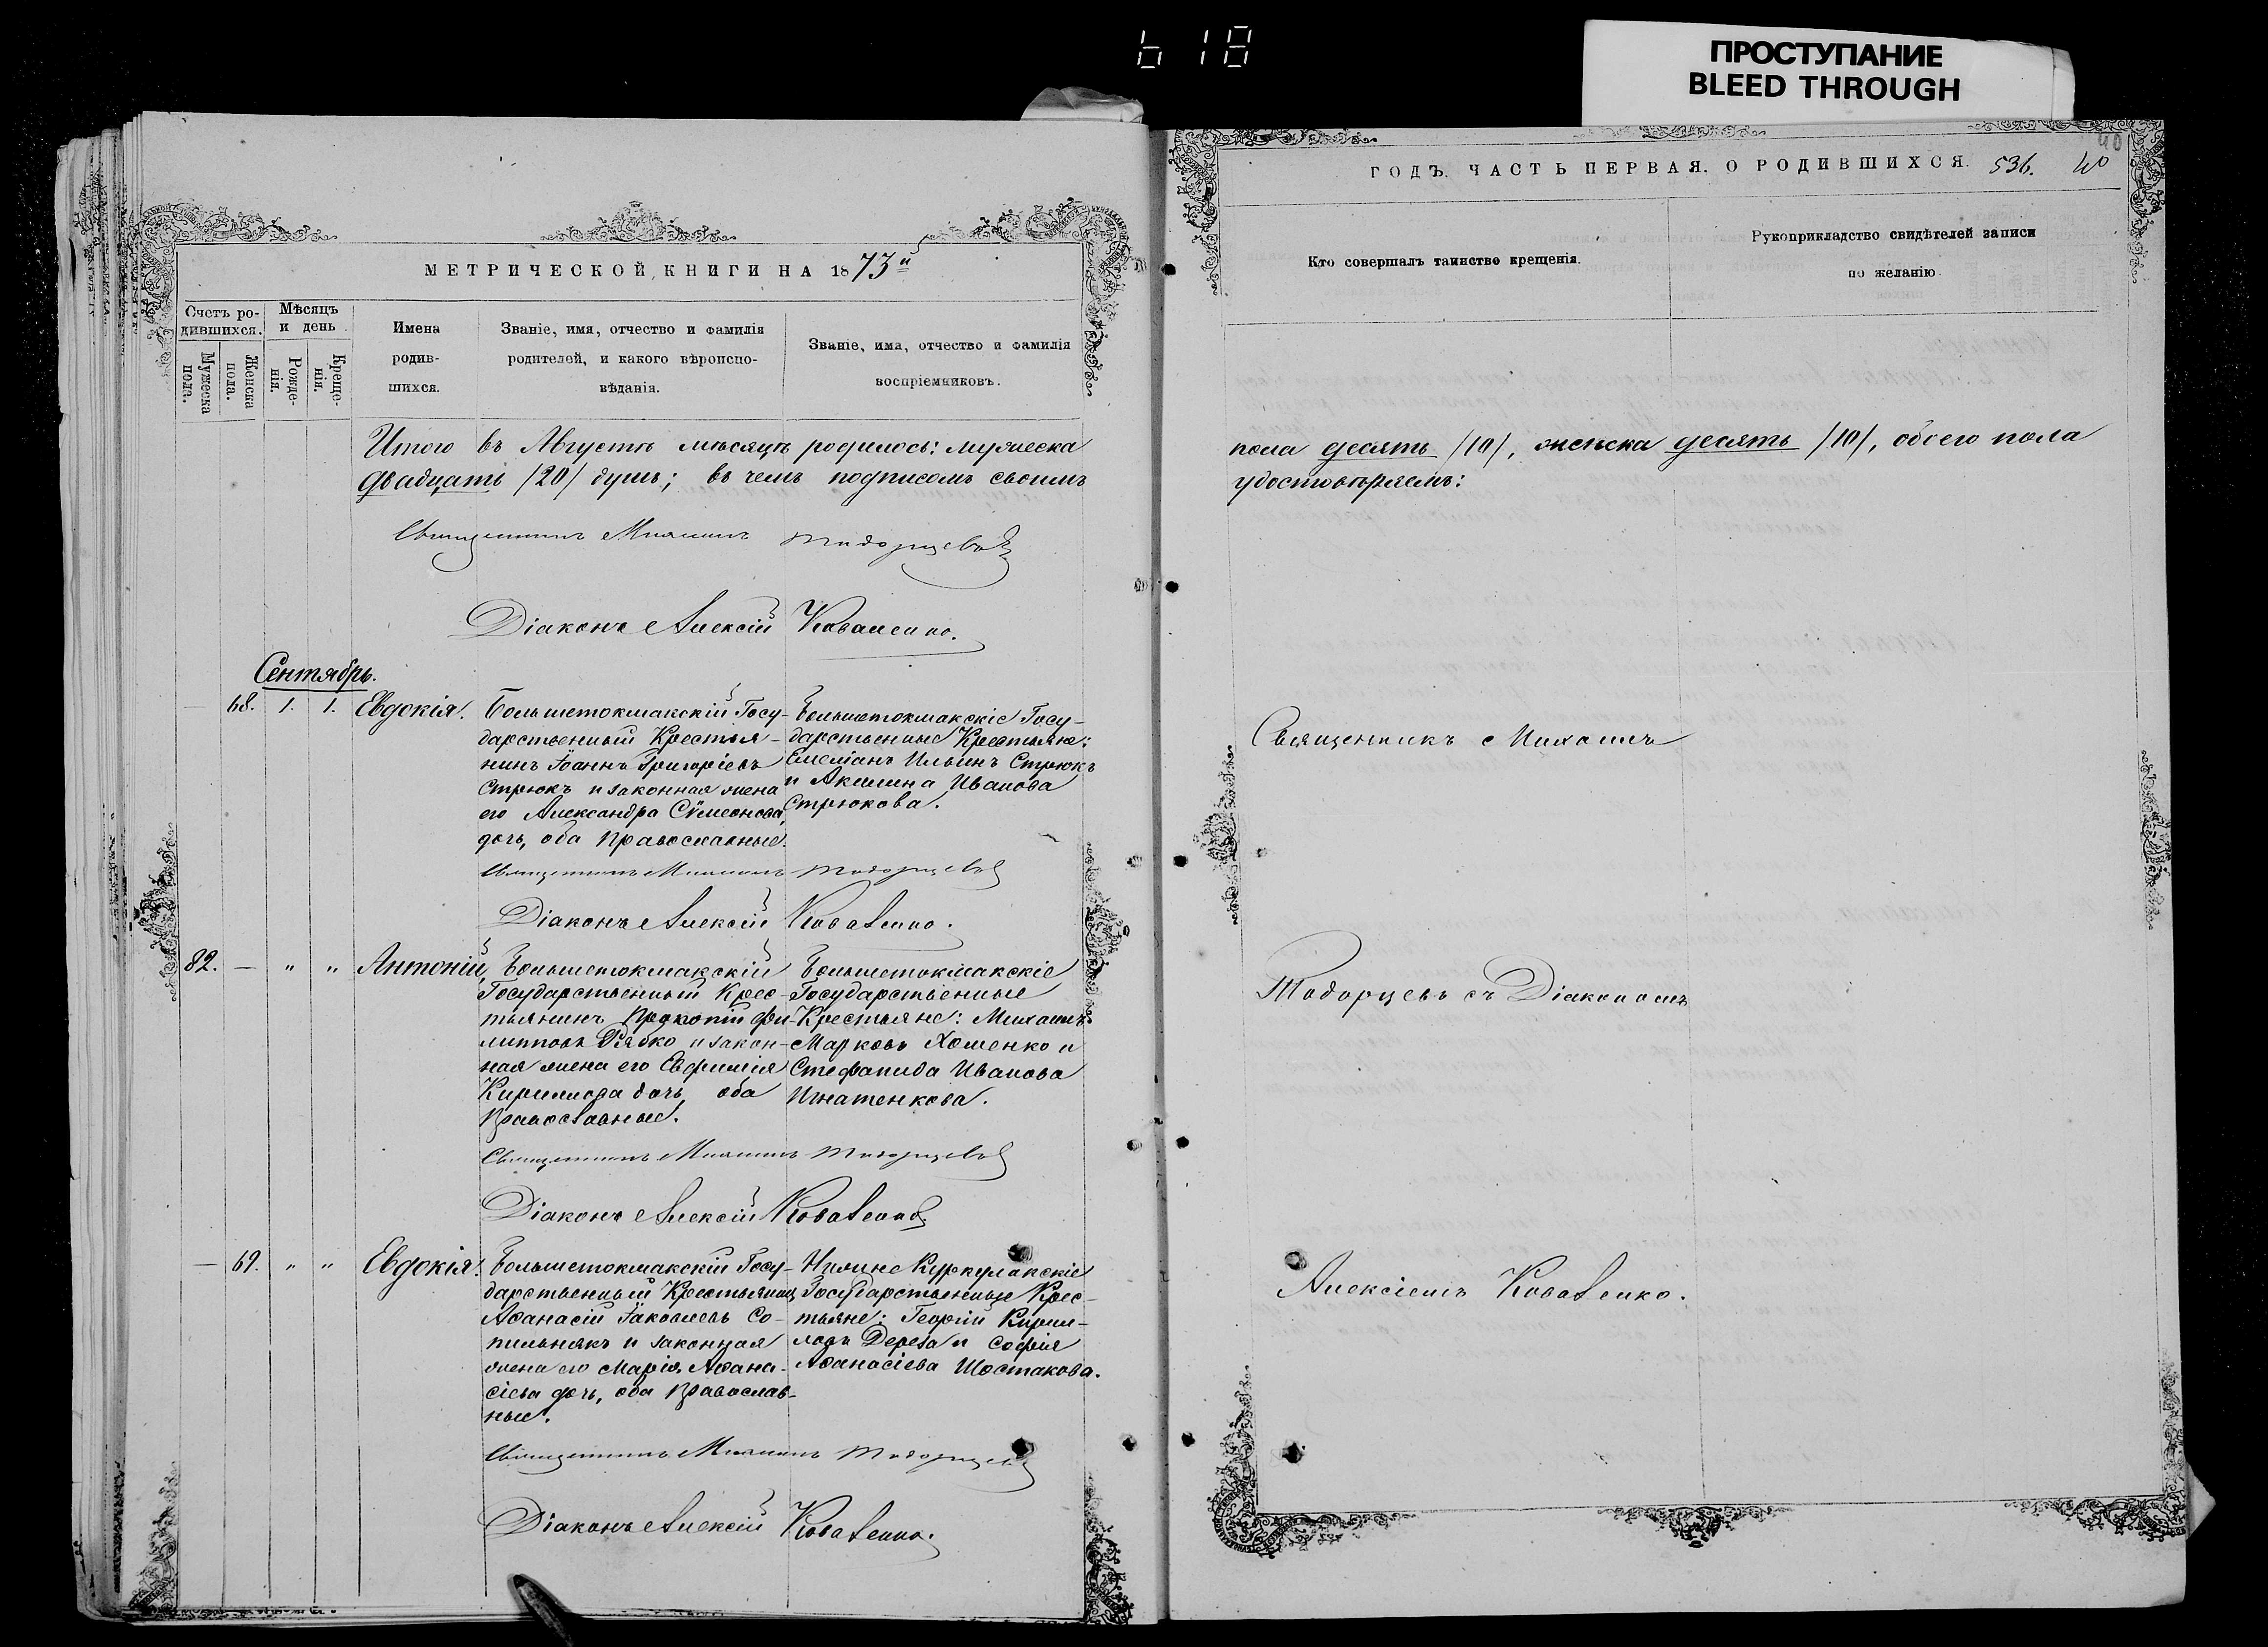 618
ПРОСТУПАНИЕ
BLEED THROUGH
МЕТРИЧЕСКОЙ КНИГИ НА 1873й
Счетъ ро-
дившихся.
Мужеска пола.
Женска пола.
Мѣсяцъ
и день
Рожде-
нія.
Креще-
нія.
Имена
родив-
шихся.
Званіе, имя, отчество и фамилія
родителей, и какого вѣроиспо-
вѣданія.
Званіе, имя, отчество и фамилія
воспріемниковъ.
Итого въ Августѣ мѣсяцѣ родилось: мужеска
двадцать /20/ душъ; въ чемъ подписомъ своимъ
Священникъ Михаилъ Тодорцевъ
Діаконъ Алексій Коваленко.
Сентябрь.
68. 1. 1. Евдокія.
Большетокмакскій Госу-
дарственный Крестья-
нинъ Іоаннъ Григоріевъ
Стрюкъ и законная жена
его Александра Сѵмеонова
дочь, оба Православные.
Большетокмакскіе Госу-
дарственные Крестьяне:
Симеонъ Ильинъ Стрюкъ
и Акилина Иванова
Стрюкова.
Священникъ Михаилъ Тодорцевъ
Діаконъ Алексій Коваленко.
82. — " " Антоній,
Большетокмакскій
Государственный Крес-
тьянинъ Прокопій Фи-
липповъ Рябко и закон-
ная жена его Евфимія
Кириллова дочь, оба
Православные.
Большетокмакскіе
Государственные
Крестьяне: Михаилъ
Марковъ Хоменко и
Стефанида Иванова
Игнатенкова.
Священникъ Михаилъ Тодорцевъ
Діаконъ Алексій Коваленко
— 69. " " Евдокія.
Большетокмакскій Госу-
дарственный Крестьянинъ
Аѳанасій Іаковлевъ Со-
пильнякъ и законная
жена его Марія Аѳана-
сіева дочь, оба Православ-
ные.
Нижне Куркулакскіе
Государственные Крес-
тьяне: Георгій Кирил-
ловъ Дереза и Софія
Аѳанасіева Шостакова.
Священникъ Михаилъ Тодорцевъ
Діаконъ Алексій Коваленко.
ГОДЪ. ЧАСТЬ ПЕРВАЯ. О РОДИВШИХСЯ. 536. 40
40
Кто совершалъ таинство крещенія.
Рукоприкладство свидѣтелей записи
по желанію.
пола десять /10/, женска десять /10/, обоего пола
удостовѣряемъ:
Священникъ Михаилъ
Тодорцевъ съ Діакономъ
Алексіемъ Коваленко.